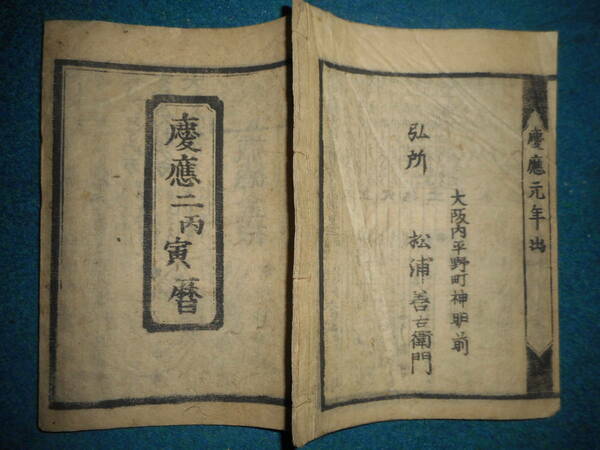 慶應元年出
大阪内平野町神明前
弘所　松浦善右衛門
慶應二丙寅暦